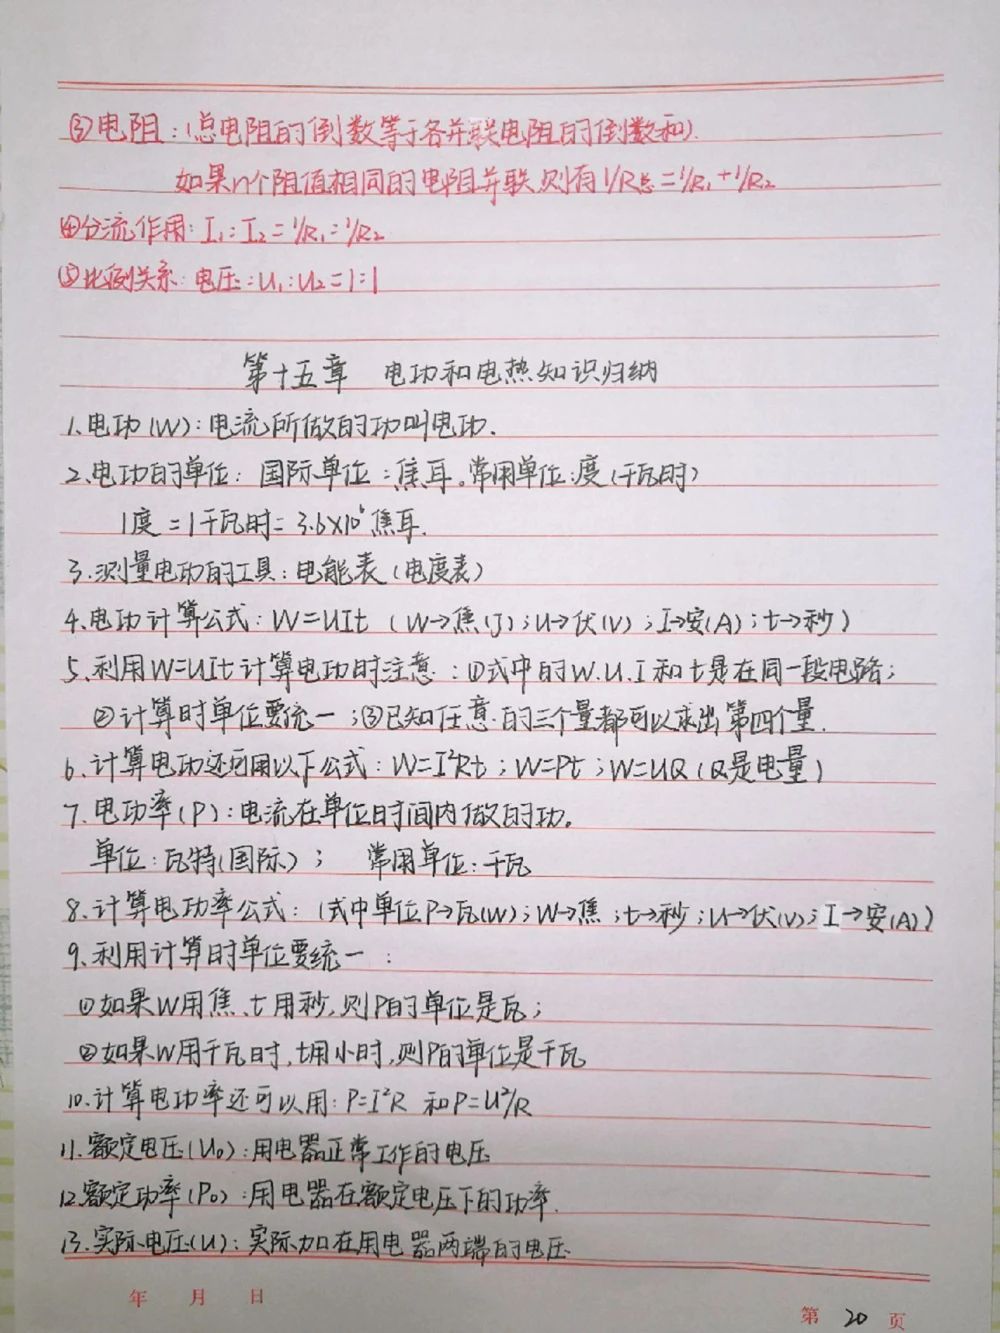 ③电阻:(总电阻的倒数等于各并联电阻的倒数和).
如果n个阻值相同的电阻并联,则有1/R总=1/R₁+1/R₂
④分流作用:I₁:I₂=1/R₁:1/R₂
⑤比例关系:电压:U₁:U₂=1:1
第十五章 电功和电热知识归纳
1.电功(W):电流所做的功叫电功.
2.电功的单位:国际单位:焦耳。常用单位:度(千瓦时)
1度=1千瓦时=3.6×10⁶焦耳.
3.测量电功的工具:电能表(电度表)
4.电功计算公式:W=UIt (W→焦(J);U→伏(V);I→安(A);t→秒)
5.利用W=UIt计算电功时注意:①式中的W.U.I和t是在同一段电路;
②计算时单位要统一;③已知任意的三个量都可以求出第四个量.
6.计算电功还可用以下公式:W=I²Rt;W=Pt;W=UQ(Q是电量)
7.电功率(P):电流在单位时间内做的功。
单位:瓦特(国际); 常用单位:千瓦
8.计算电功率公式:(式中单位P→瓦(W);W→焦;t→秒;U→伏(V);I→安(A))
9.利用计算时单位要统一:
①如果W用焦、t用秒,则P的单位是瓦;
②如果W用千瓦时,t用小时,则P的单位是千瓦
10.计算电功率还可以用:P=I²R 和P=U²/R
11.额定电压(U₀):用电器正常工作的电压
12.额定功率(P₀):用电器在额定电压下的功率.
13.实际电压(U):实际加在用电器两端的电压
年 月 日
第 20 页